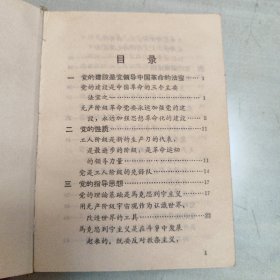 目录
一 党的建设是党领导中国革命的法宝 1
党的建设是中国革命的三个主要
法宝之一 1
无产阶级革命党要永远加强党的建
设，永远加强思想革命化的建设
二 党的性质
工人阶级是新的生产力的代表，
是最进步的阶级，是革命运动
的领导力量
党是工人阶级的先锋队
三 党的指导思想 17
党的理论基础是马克思列宁主义 17
用无产阶级宇宙观作为认识世界、
改造世界的工具 22
马克思列宁主义是在斗争中发展
起来的，既要反对教条主义，
1